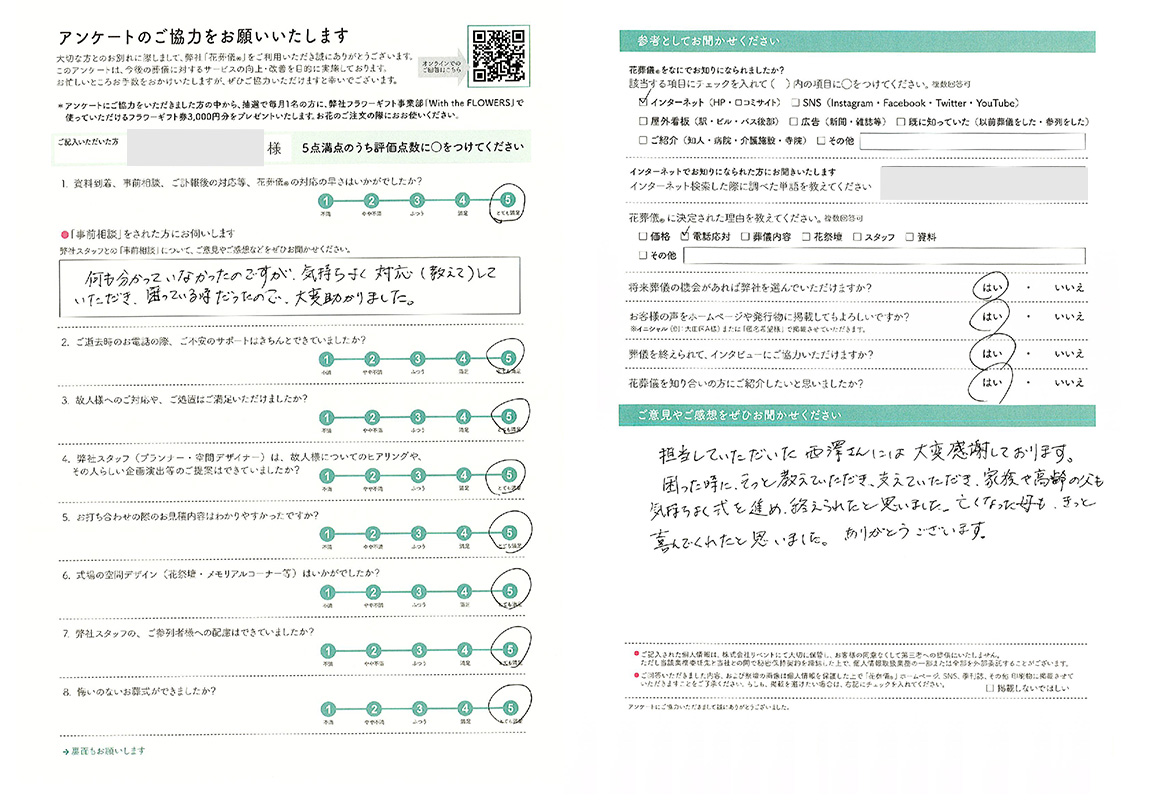 アンケートのご協力をお願いいたします
大切な方とのお別れに際しまして、弊社「花葬儀®」をご利用いただき誠にありがとうございます。
このアンケートは、今後の葬儀に対するサービスの向上・改善を目的に実施しております。
お忙しいところお手数をおかけいたしますが、ぜひご協力いただけますと幸いでございます。
オンラインでの
ご回答はこちら
＊アンケートにご協力をいただきました方の中から、抽選で毎月1名の方に、弊社フラワーギフト事業部「With the FLOWERS」で
使っていただけるフラワーギフト券3,000円分をプレゼントいたします。お花のご注文の際にお使いください。
ご記入いただいた方
様
5点満点のうち評価点数に○をつけてください
1. 資料到着、事前相談、ご訃報後の対応等、花葬儀®の対応の早さはいかがでしたか？
1 2 3 4 5
不満 やや不満 ふつう 満足 とても満足
●「事前相談」をされた方にお伺いします
弊社スタッフとの「事前相談」について、ご意見やご感想などをぜひお聞かせください。
何も分かっていなかったのですが、気持ちよく対応（教えて）して
いただき、困っている時だったので、大変助かりました。
2. ご逝去時のお電話の際、ご不安のサポートはきちんとできていましたか？
1 2 3 4 5
不満 やや不満 ふつう 満足 とても満足
3. 故人様へのご対応や、ご処置はご満足いただけましたか？
1 2 3 4 5
不満 やや不満 ふつう 満足 とても満足
4. 弊社スタッフ（プランナー・空間デザイナー）は、故人様についてのヒアリングや、
その人らしい企画演出等のご提案はできていましたか？
1 2 3 4 5
不満 やや不満 ふつう 満足 とても満足
5. お打ち合わせの際のお見積内容はわかりやすかったですか？
1 2 3 4 5
不満 やや不満 ふつう 満足 とても満足
6. 式場の空間デザイン（花祭壇・メモリアルコーナー等）はいかがでしたか？
1 2 3 4 5
不満 やや不満 ふつう 満足 とても満足
7. 弊社スタッフの、ご参列者様への配慮はできていましたか？
1 2 3 4 5
不満 やや不満 ふつう 満足 とても満足
8. 悔いのないお葬式ができましたか？
1 2 3 4 5
不満 やや不満 ふつう 満足 とても満足
→裏面もお願いします
参考としてお聞かせください
花葬儀®をなにでお知りになられましたか？
該当する項目にチェックを入れて（ ）内の項目に○をつけてください。複数回答可
☑インターネット（HP・口コミサイト） □SNS（Instagram・Facebook・Twitter・YouTube）
□屋外看板（駅・ビル・バス後部） □広告（新聞・雑誌等） □既に知っていた（以前葬儀をした・参列をした）
□ご紹介（知人・病院・介護施設・寺院） □その他
インターネットでお知りになられた方にお聞きいたします
インターネット検索した際に調べた単語を教えてください
花葬儀®に決定された理由を教えてください。複数回答可
□価格 ☑電話応対 □葬儀内容 □花祭壇 □スタッフ □資料
□その他
将来葬儀の機会があれば弊社を選んでいただけますか？ はい ・ いいえ
お客様の声をホームページや発行物に掲載してもよろしいですか？ はい ・ いいえ
※イニシャル（例：大田区A様）または「匿名希望様」で掲載させていただきます。
葬儀を終えられて、インタビューにご協力いただけますか？ はい ・ いいえ
花葬儀を知り合いの方にご紹介したいと思いましたか？ はい ・ いいえ
ご意見やご感想をぜひお聞かせください
担当していただいた西澤さんには大変感謝しております。
困った時に、そっと教えていただき、支えていただき、家族や高齢の父も
気持ちよく式を進め、終えられたと思いました。亡くなった母も、きっと
喜んでくれたと思いました。ありがとうございます。
●ご記入された個人情報は、株式会社リベントにて大切に保管し、お客様の同意なくして第三者への提供はいたしません。
ただし当該業務委託先と当社との間で秘密保持契約を締結した上で、個人情報取扱業務の一部または全部を外部委託することがございます。
●ご回答いただきました内容、および祭壇の画像は個人情報を保護した上で「花葬儀®」ホームページ、SNS、季刊誌、その他印刷物に掲載させて
いただきますことをご了承ください。もしも、掲載を避けたい場合は、右記にチェックを入れてください。 □掲載しないでほしい
アンケートにご協力いただきまして誠にありがとうございました。